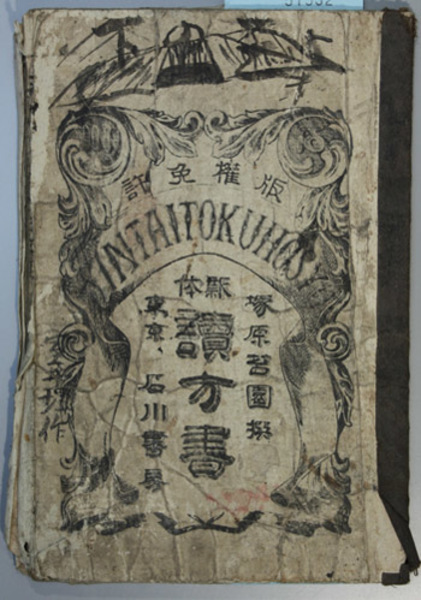 版權免許
INTAITOKUHOSYO
体
塚原苔園撰
讀方書
東京、石川書房
作